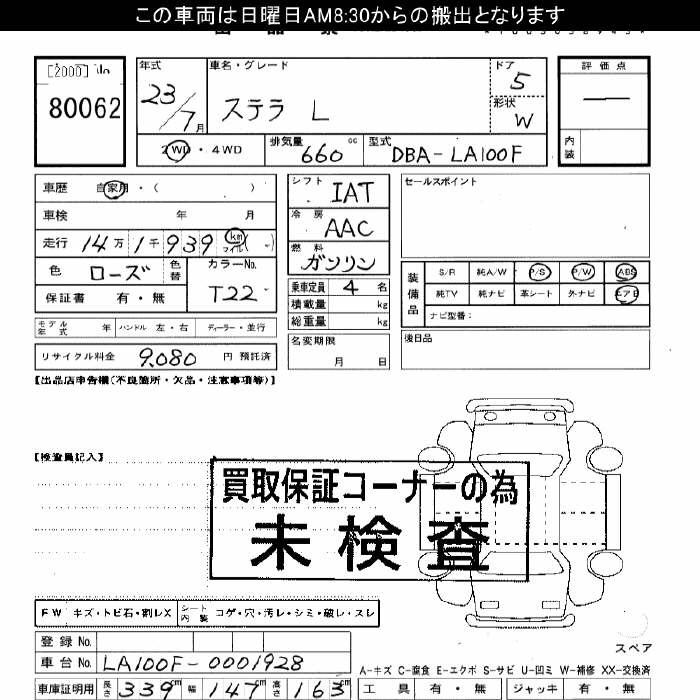 この車両は日曜日AM8:30からの搬出となります
[2000] No
80062
年式 23/7月
車名・グレード
ステラ L
ドア 5
形状 W
評価点
—
内装
2WD・4WD
排気量 660 cc
型式 DBA-LA100F
車歴 自家用・( )
車検 年 月
走行 14万1千939 km マイル( )
色 ローズ 色替
カラーNo. T22
保証書 有・無
モデル年式 年 ハンドル 左・右 ディーラー・並行
リサイクル料金 9,080 円 預託済
シフト IAT
冷房 AAC
燃料 ガソリン
乗車定員 4 名
積載量 kg
総重量 kg
名変期限
月 日
セールスポイント
装備品
S/R 純A/W P/S P/W ABS
純TV 純ナビ 革シート 外ナビ エアB
ナビ型番:
後日品
【出品店申告欄(不良箇所・欠品・注意事項等)】
【検査員記入】
買取保証コーナーの為
未検査
FW キズ・トビ石・割レX
シート内装 コゲ・穴・汚レ・シミ・破レ・スレ
登録 No.
車台 No. LA100F-0001928
車庫証明用 長さ 339cm 幅 147cm 高さ 163cm
スペア
A-キズ C-腐食 E-エクボ S-サビ U-凹ミ W-補修 XX-交換済
工具 有・無 ジャッキ 有・無